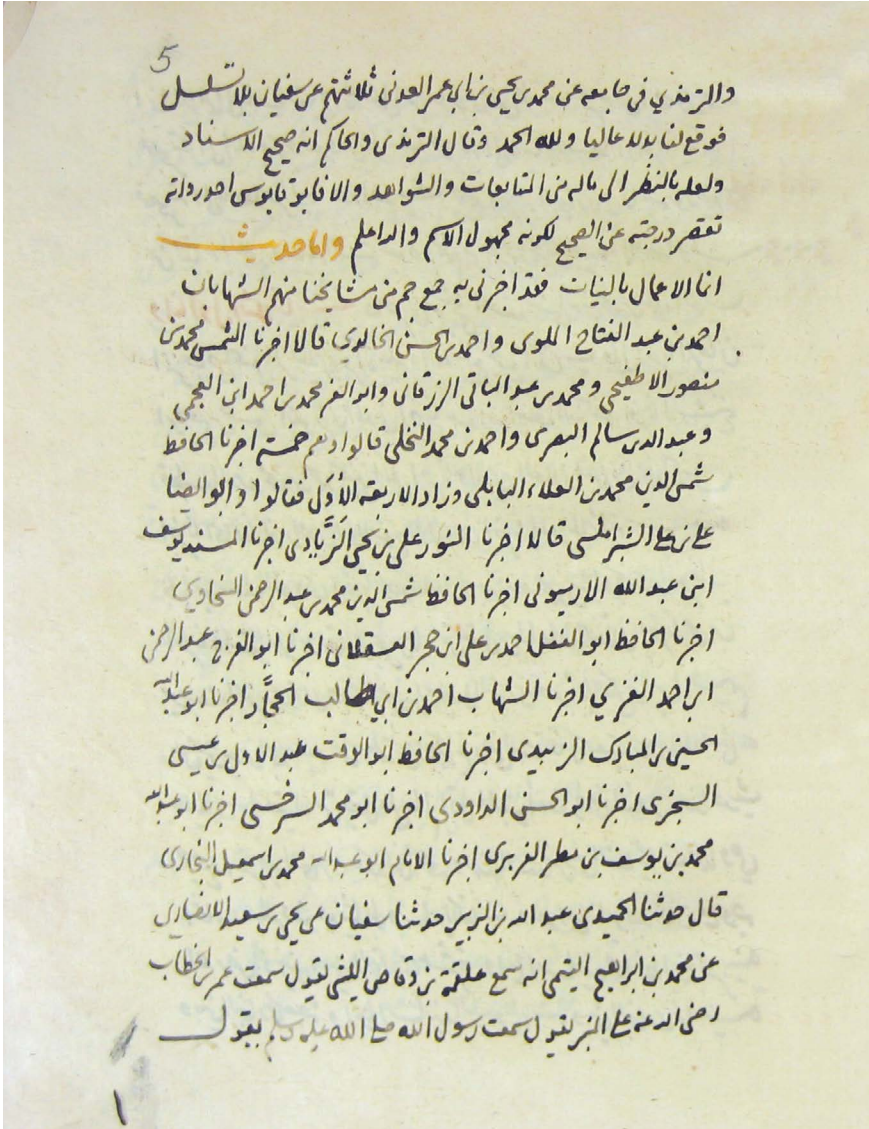 5
والترمذي في جامعه عن محمد بن يحيى بن ابي عمر العدني ثلاثتهم عن سفيان بلا تسلسل
فوقع لنا بدلا عاليا ولله الحمد وقال الترمذي والحاكم انه صحيح الاسناد
ولعله بالنظر الى ماله من المتابعات والشواهد والا فابو قابوس احد رواته
تقصر درجته عن الصحيح لكونه مجهول الاسم والله اعلم واما حديث
انما الاعمال بالنيات فقد اخبرني به جمع جم من مشايخنا منهم الشهابان
احمد بن عبد الفتاح الملوى واحمد بن الحسن الخالدي قالا اخبرنا الشمس محمد بن
منصور الاطفيحي ومحمد بن عبد الباقي الزرقاني وابو العز محمد بن احمد ابن العجمي
وعبد الله بن سالم البصرى واحمد بن محمد النخلي قالوا وهم خمسة اخبرنا الحافظ
شمس الدين محمد بن العلاء البابلي وزاد الاربعة الأُوَل فقالوا وابو الضيا
علي بن علي الشبراملسى قالا اخبرنا النور علي بن يحيى الزَّيَّادى اخبرنا المسند يوسف
ابن عبد الله الارميوني اخبرنا الحافظ شمس الدين محمد بن عبد الرحمن السخاوي
اخبرنا الحافظ ابو الفضل احمد بن علي ابن حجر العسقلاني اخبرنا ابو الفرج عبد الرحمن
ابن احمد الغزي اخبرنا الشهاب احمد بن ابي طالب الحجَّار اخبرنا ابو عبد الله
الحسين بن المبارك الزبيدى اخبرنا الحافظ ابو الوقت عبد الاول بن عيسى
السجزى اخبرنا ابو الحسن الداودى اخبرنا ابو محمد السرخسى اخبرنا ابو عبد الله
محمد بن يوسف بن مطر الفربرى اخبرنا الامام ابو عبد الله محمد بن اسمعيل البخارى
قال حدثنا الحميدى عبد الله بن الزبير حدثنا سفيان عن يحيى بن سعيد الانصارى
عن محمد بن ابراهيم التيمى انه سمع علقمة بن وقاص الليثى يقول سمعت عمر بن الخطاب
رضي الله عنه على المنبر يقول سمعت رسول الله صلى الله عليه وسلم يقول
١